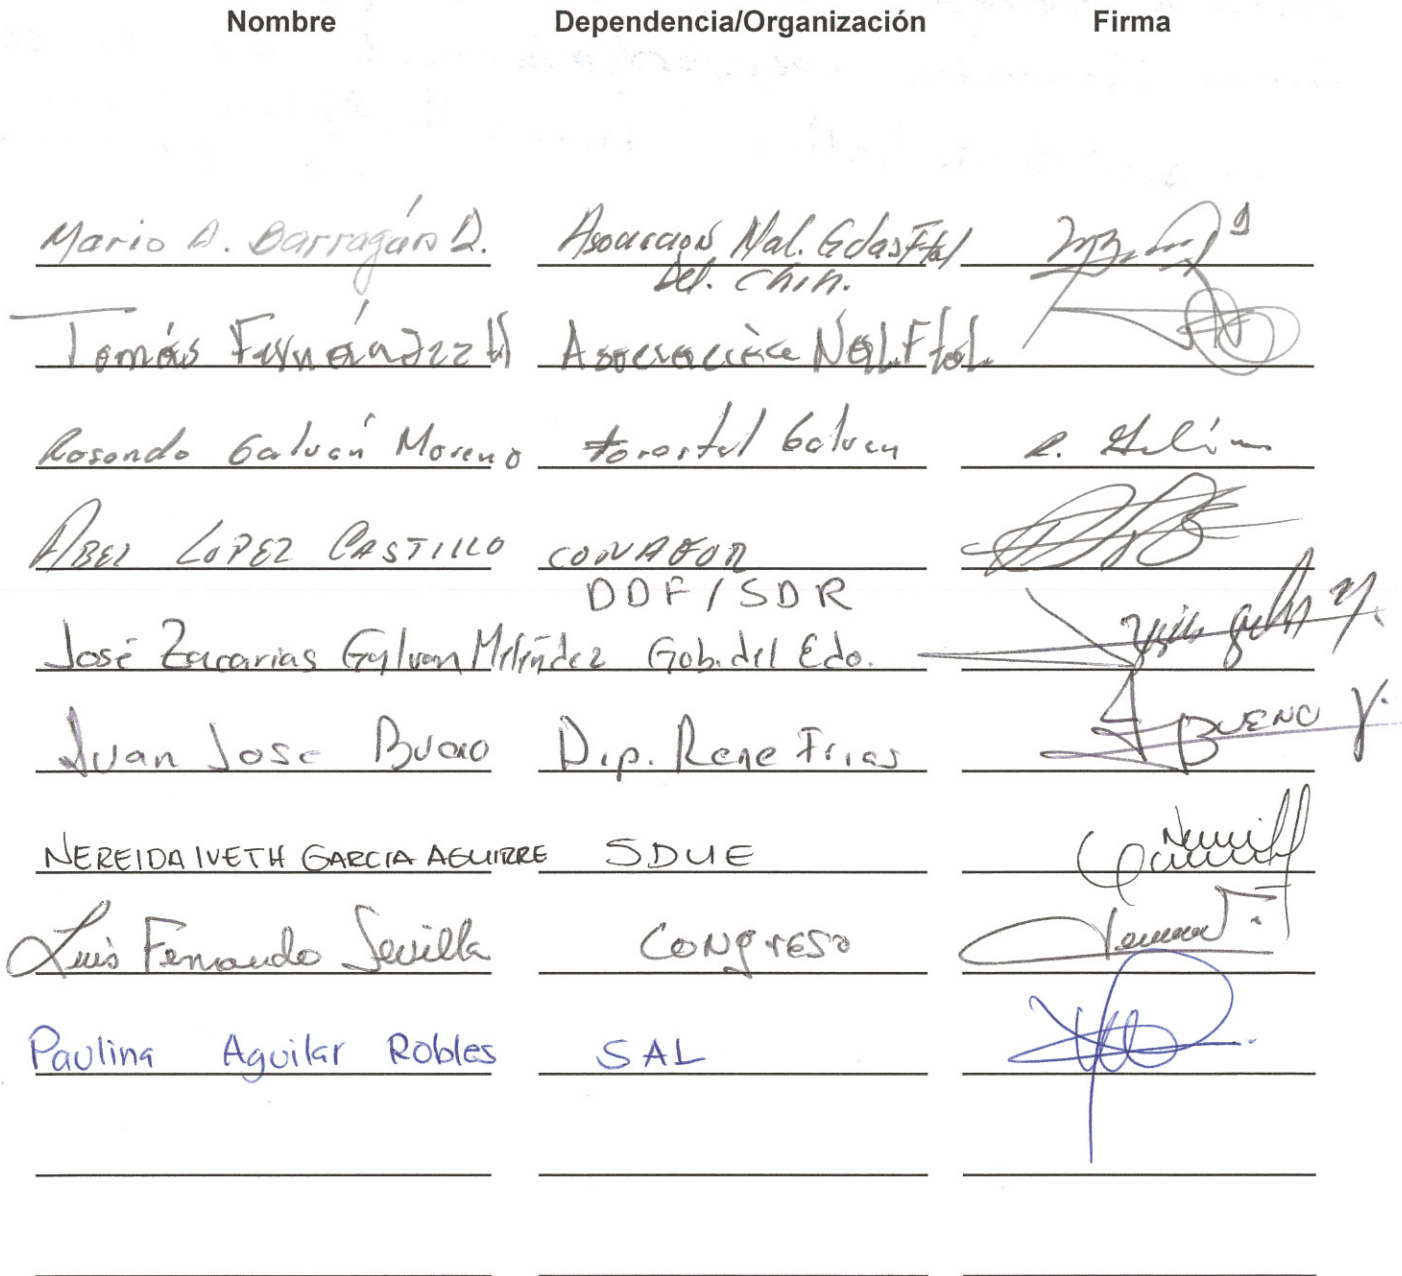 Nombre Dependencia/Organización Firma
Mario A. Barragán D. Asociación Nal. Gdas Ftal
Del. Chih.
Tomás Fernández H Asociación Nal. Ftal.
Rosendo Galván Moreno Forestal Galvan R. Galván
ABEL LOPEZ CASTILLO CONAFOR
DDF/SDR
José Zacarias Galvan Meléndez Gob. del Edo.
Juan Jose Bueno Dip. Rene Frias J BUENO V.
NEREIDA IVETH GARCIA AGUIRRE SDUE
Luis Fernando Sevilla CONgreso
Paulina Aguilar Robles SAL